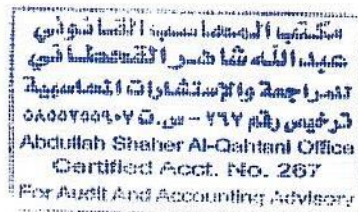 مكتب المحاسب القانوني
عبدالله شاهر القحطاني
للمراجعة والإستشارات المحاسبية
ترخيص رقم ٧٦٧ - س.ت
Abdullah Shaher Al-Qahtani Office
Certified Acct. No. 267
For Audit And Accounting Advisory